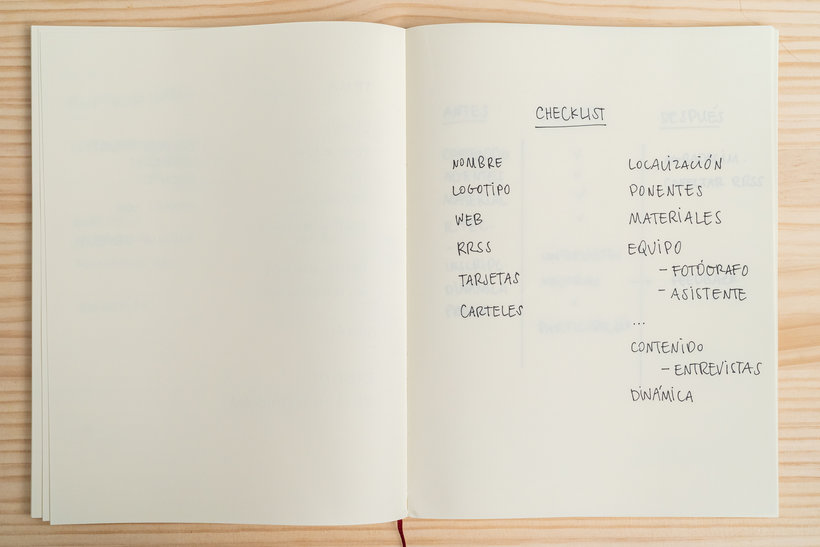 CHECKLIST
NOMBRE
LOGOTIPO
WEB
RRSS
TARJETAS
CARTELES
LOCALIZACIÓN
PONENTES
MATERIALES
EQUIPO
- FOTÓGRAFO
- ASISTENTE
...
CONTENIDO
- ENTREVISTAS
DINÁMICA
ANTES
DESPUÉS